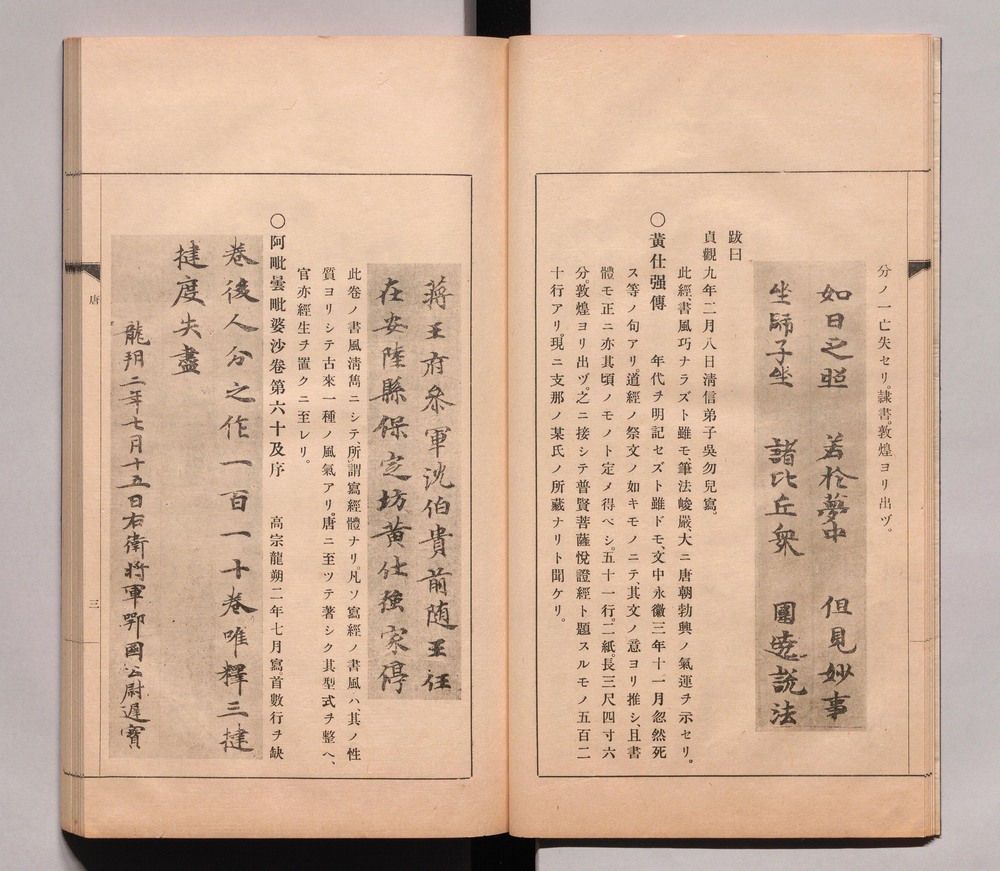 分ノ一亡失セリ。隷書。敦煌ヨリ出ヅ。
如日之照 若於夢中 但見妙事
坐師子坐 諸比丘衆 圍遶說法
跋曰
貞觀九年二月八日淸信弟子吳勿兒寫。
此經、書風巧ナラズト雖モ、筆法峻嚴、大ニ唐朝勃興ノ氣運ヲ示セリ。
〇黃仕强傳 年代ヲ明記セズト雖ドモ、文中永徽三年十一月忽然死
ス等ノ句アリ。道經ノ祭文ノ如キモノニテ、其文ノ意ヨリ推シ、且書
體モ正ニ亦其頃ノモノト定メ得ベシ。五十一行。二紙。長三尺四寸六
分。敦煌ヨリ出ヅ。之ニ接シテ普賢菩薩悅證經ト題スルモノ五百二
十行アリ。現ニ支那ノ某氏ノ所藏ナリト聞ケリ。
蔣王府叅軍沈伯貴前随王任
在安陸縣保定坊黃仕强家停
此卷ノ書風淸雋ニシテ、所謂寫經體ナリ。凡ソ寫經ノ書風ハ、其ノ性
質ヨリシテ古來一種ノ風氣アリ。唐ニ至ツテ著シク其型式ヲ整ヘ、
官亦經生ヲ置クニ至レリ。
〇阿毗曇毗婆沙卷第六十及序 高宗龍朔二年七月寫首數行ヲ缺
卷後人分之作一百一十卷唯釋三揵
揵度失盡
龍朔二年七月十五日右衛將軍鄂國公尉遲寶
唐
三